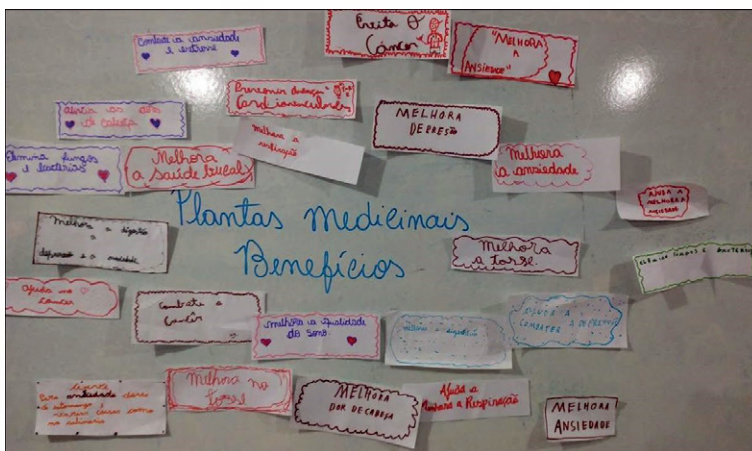 Combate a ansiedade
e estresse
Evita O
Câncer
"MELHORA
A
ANSIEDADE"
Alivia as dores
de cabeça
Prevenir doenças
Cardiovasculares
Melhora a
respiração
MELHORA
DEPRESÃO
Elimina fungos
e bactérias
Melhora
a Saúde bucal
Melhora
a ansiedade
AJUDA A
MELHORA
ANSIEDADE
Plantas Medicinais
Benefícios
Melhora a digestão
Melhora
a tosse
ajuda no
cancer
Combate o
Cancêr
Melhora a Qualidade
do Sono.
digestão
AJUDA A
COMBATER A DEPRESÃO
Para ansiedade dores
de estomango
como
na culinária
Melhora na
tosse
MELHORA
DOR DE CABEÇA
Ajuda a
Melhora a Respiração
MELHORA
ANSIEDADE